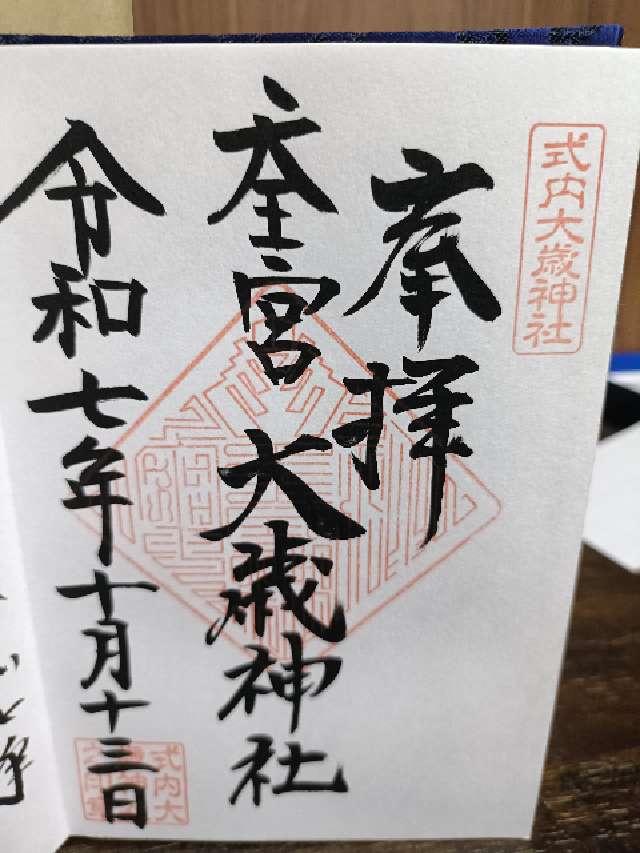 式内大歳神社
奉拝
天王宮大歳神社
令和七年十月十三日
式内大